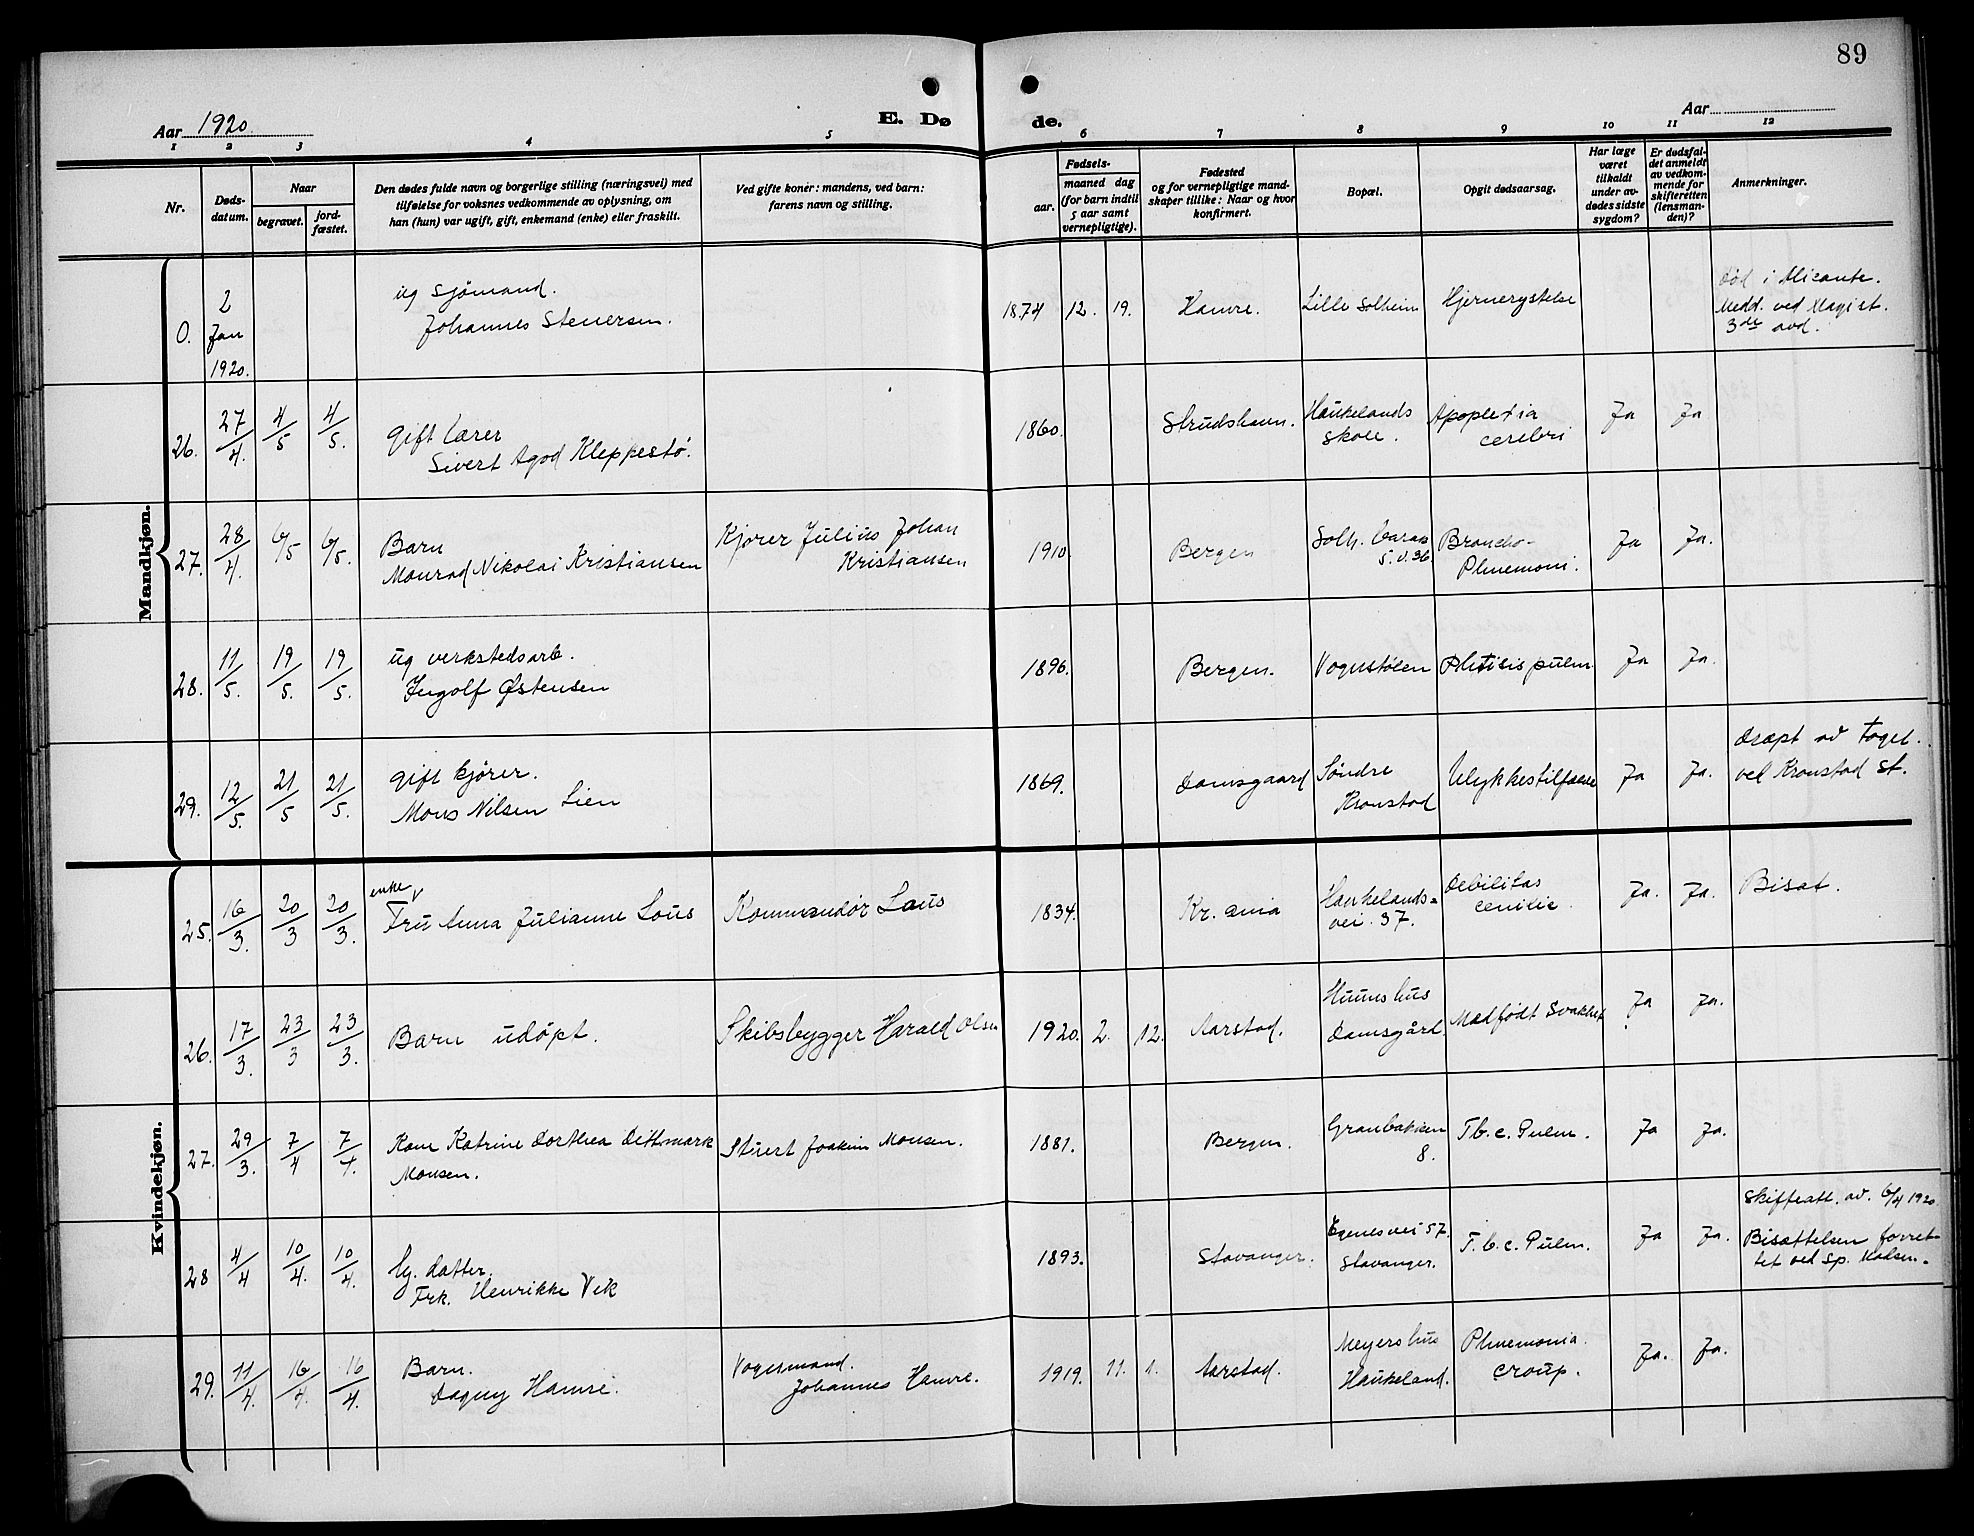 89
Aar 1920.
E. Dø de.
Aar
1 2 3 4 5 6 7 8 9 10 11 12
Nr.
Døds-
datum.
Naar
begravet.
jord-
fæstet.
Den dødes fulde navn og borgerlige stilling (næringsvei) med
tilføielse for voksnes vedkommende av oplysning, om
han (hun) var ugift, gift, enkemand (enke) eller fraskilt.
Ved gifte koner: mandens, ved barn:
farens navn og stilling.
Fødsels-
aar.
maaned dag
(for barn indtil
5 aar samt
vernepligtige).
Fødested
og for vernepligtige mand-
skaper tillike: Naar og hvor
konfirmert.
Bopæl.
Opgit dødsaarsag.
Har læge
været
tilkaldt
under av-
dødes sidste
sygdom?
Er dødsfal-
det anmeldt
av vedkom-
mende for
skifteretten
(lensman-
den)?
Anmerkninger.
Mandkjøn.
0.
2
Jan
1920.
ug sjömand.
Johannes Stenersen.
1874 12. 19.
Hamre.
Lille Solheim
Hjernerystelse
død i Alicante.
Medd. ved Magist.
3die avd.
26. 27/4. 4/5 4/5.
gift lærer
Sivert Agod Kleppestø.
1860.
Strudshavn.
Haukelands
skole.
Apoplexia
cerebri
Ja Ja
27. 28/4. 6/5 6/5.
Barn
Monrad Nikolai Kristiansen
Kjører Julius Johan
Kristiansen
1910
Bergen
Solh.
5.v.36.
Broncho-
Phnemoni.
Ja Ja.
28. 11/5. 19/5. 19/5.
ug verkstedsarb.
Ingolf Østensen
1896.
Bergen.
Vognstølen
Phtisis pulm
Ja Ja.
29. 12/5. 21/5 21/5.
gift kjører.
Mons Nilsen Lien
1869.
Damsgaard
Søndre
Kronstad
Ulykkestilfælde
Ja Ja.
dræpt av toget.
ved Kronstad st.
Kvindekjøn.
25. 16/3. 20/3 20/3.
enke
Fru Anna Julianne Lous
Kommandør Lous
1834.
Kr. ania
Haukelands-
vei. 37.
Debilitas
cenilie.
Ja. Ja.
Bisat.
26. 17/3. 23/3 23/3.
Barn udøpt.
Skibsbygger Harald Olsen
1920. 2. 12.
Aarstad.
Huuns hus
Damsgård.
Medfødt Svakhet
Ja Ja.
27. 29/3. 7/4 7/4.
Kone Katrine Dorthea Dithmark
Monsen.
Stuert Joakim Monsen.
1881.
Bergen.
Granbakken
8.
Tb.c. Pulm.
Ja Ja.
28 4/4 10/4. 10/4.
Ug. datter.
Frk. Henrikke Vik
1893.
Stavanger.
Egenesvei 57.
Stavanger.
T.b.c. Pulm.
Ja Ja.
Skifteatt. av. 6/4 1920
Bisættelsen forret-
tet ved Sp. Madsen.
29. 11/4. 16/4. 16/4.
Barn.
Dagny Hamre.
Vognmand.
Johannes Hamre.
1919. 11. 1.
Aarstad.
Meyers hus
Haukeland.
Phnemonia.
croup.
Ja. Ja.